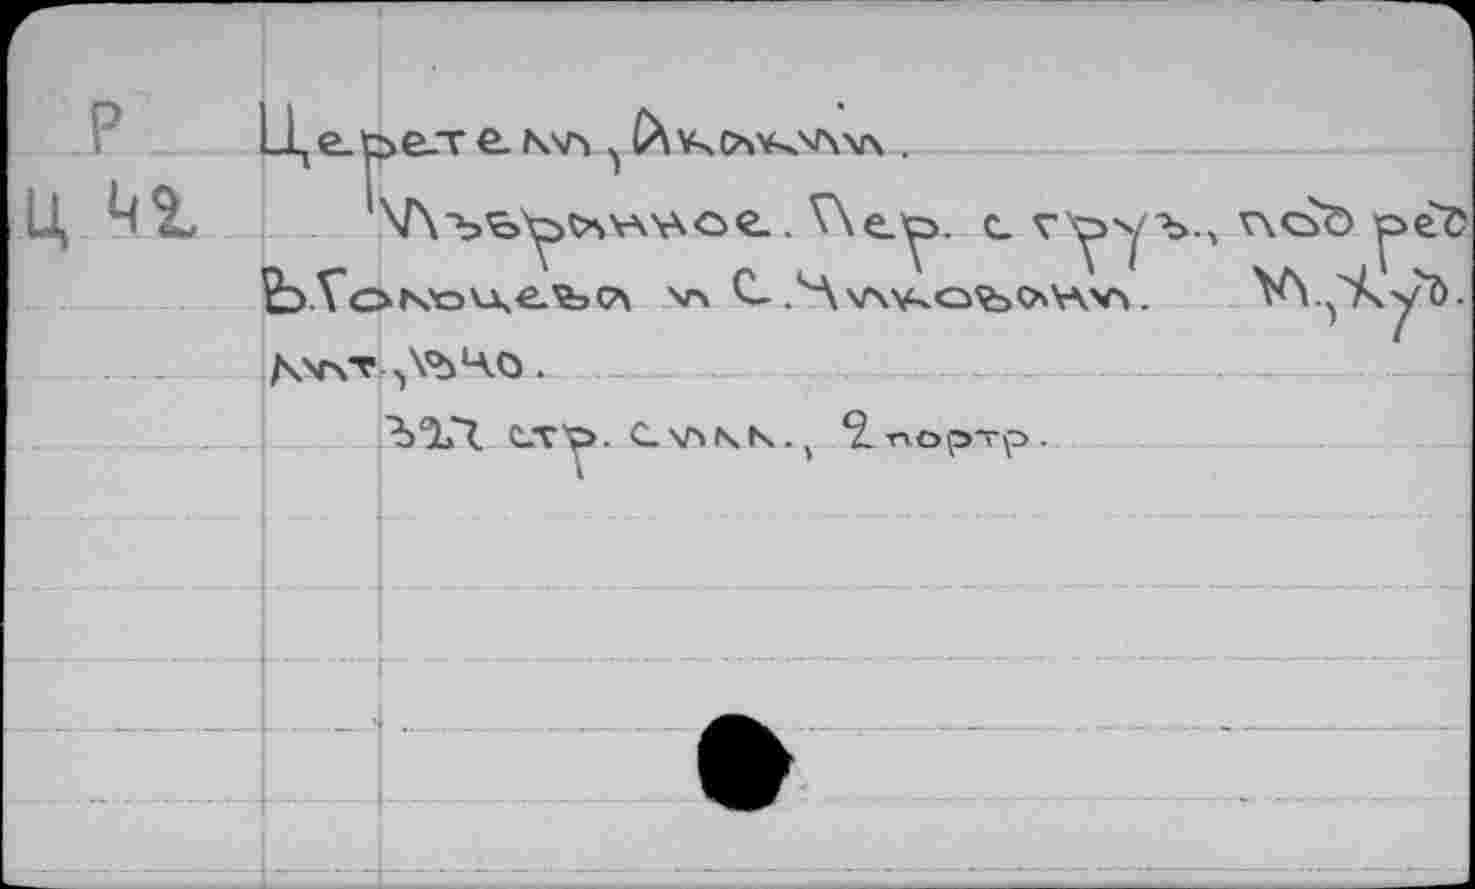 Р Церетели, Акакий.
Ц 42 Избранное. Пер. с груз., под ред
В.Гольцева и С.Чиковани. М.,Худ.
лит,1940.
327 стр. с илл., 2 портр.